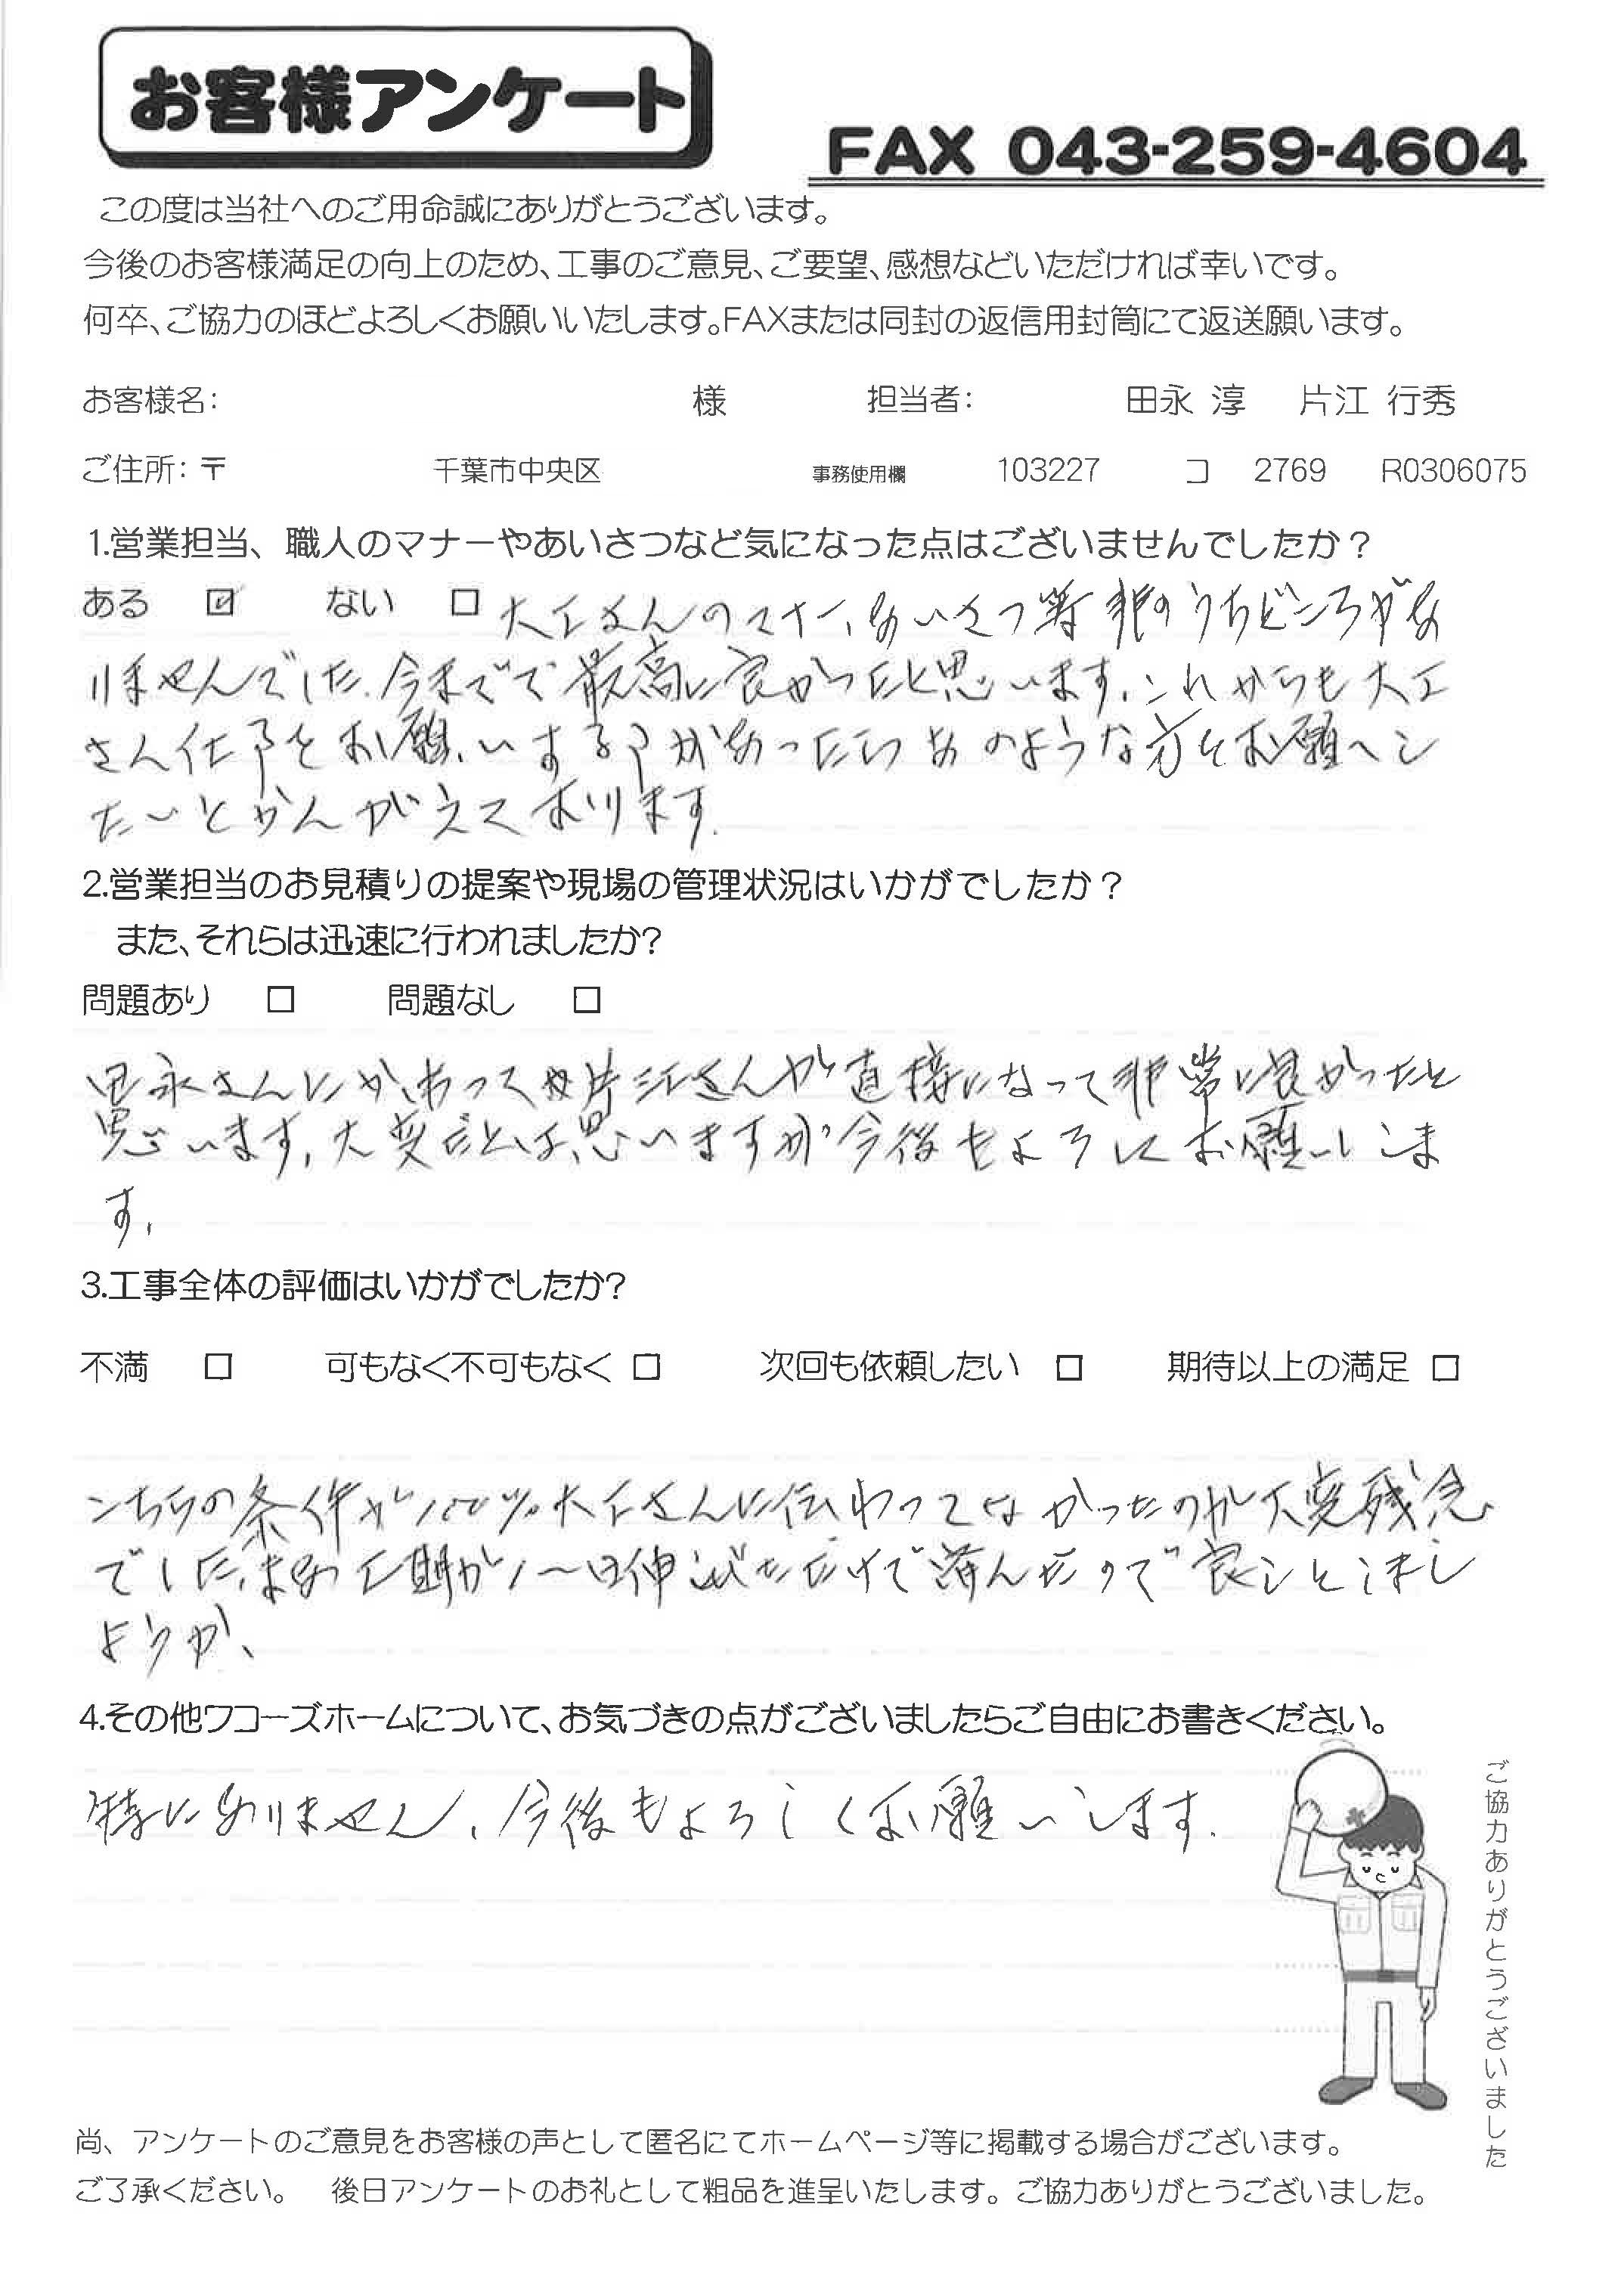 お客様アンケート
FAX 043-259-4604
この度は当社へのご用命誠にありがとうございます。
今後のお客様満足の向上のため、工事のご意見、ご要望、感想などいただければ幸いです。
何卒、ご協力のほどよろしくお願いいたします。FAXまたは同封の返信用封筒にて返送願います。
お客様名: 様 担当者: 田永 淳 片江 行秀
ご住所: 〒 千葉市中央区 事務使用欄 103227 コ 2769 R0306075
1.営業担当、職人のマナーやあいさつなど気になった点はございませんでしたか？
ある ☑ ない □ 大工さんのマナー、あいさつ等非のうちどころがな
りませんでした.今までで最高に良かったと思います.これからも大工
さん仕事をお願いする事があったらあのような方をお願いし
たいとかんがえております.
2.営業担当のお見積りの提案や現場の管理状況はいかがでしたか？
また、それらは迅速に行われましたか?
問題あり □ 問題なし □
田永さんにかわって片江さんが直接になって非常に良かったと
思います,大変だとは思いますが今後もよろしくお願いしま
す,
3.工事全体の評価はいかがでしたか?
不満 □ 可もなく不可もなく □ 次回も依頼したい □ 期待以上の満足 □
こちらの条件が100%大工さんに伝わってなかったのが大変残念
でした,まあ工期が1〜日伸びただけで済んだので良しとしまし
ょうか、
4.その他ワコーズホームについて、お気づきの点がございましたらご自由にお書きください。
特にありません、今後もよろしくお願いします.
ご協力ありがとうございました
尚、アンケートのご意見をお客様の声として匿名にてホームページ等に掲載する場合がございます。
ご了承ください。 後日アンケートのお礼として粗品を進呈いたします。ご協力ありがとうございました。